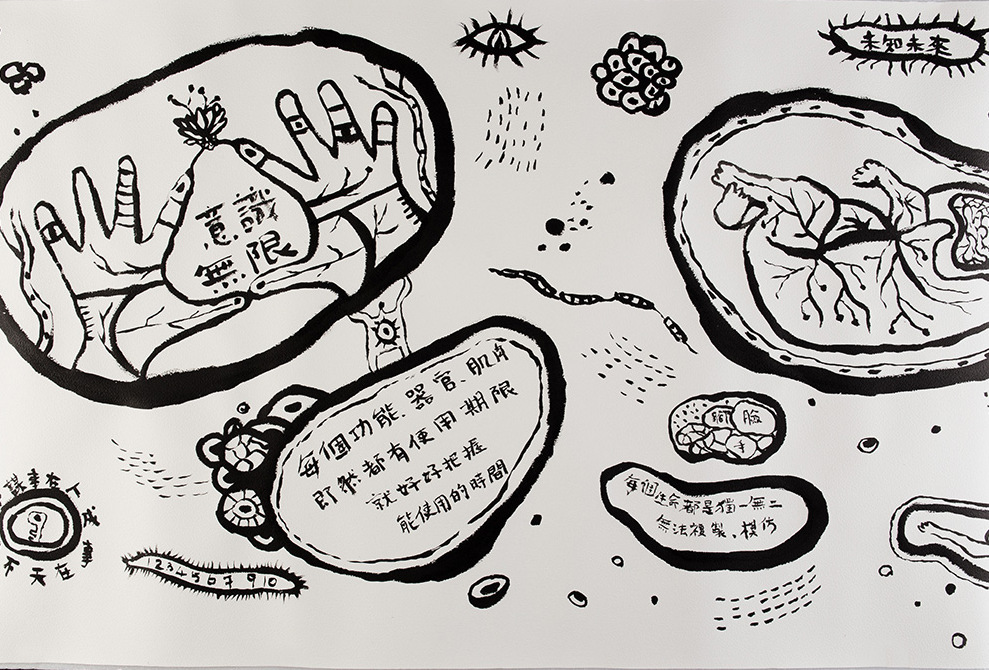 未知未來
意識
無限
每個功能、器官、肌肉
即然都有使用期限
就好好把握
能使用的時間
每個生命都是獨一無二
無法複製、模仿
謀事在人成事在天
1 2 3 4 5 6 7 9 10